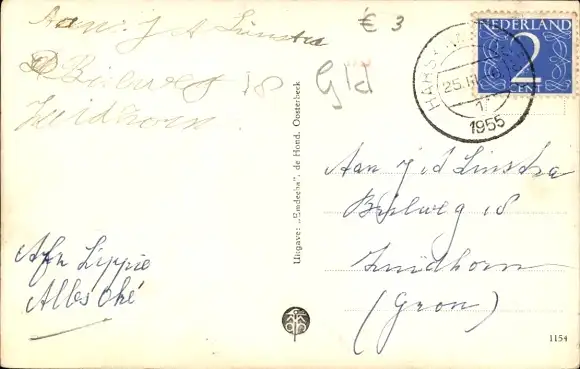 Aan: J d Linstra
Bijlweg 18
Zuidhorn
€ 3
Gld
NEDERLAND
2
CENT
25.III
1955
Uitgave: „Emdeeha", de Hond, Oosterbeek
Aan J d Linstra
Bijlweg 18
Zuidhorn
(Gron)
Afz Lippie
Alles Oké
1154